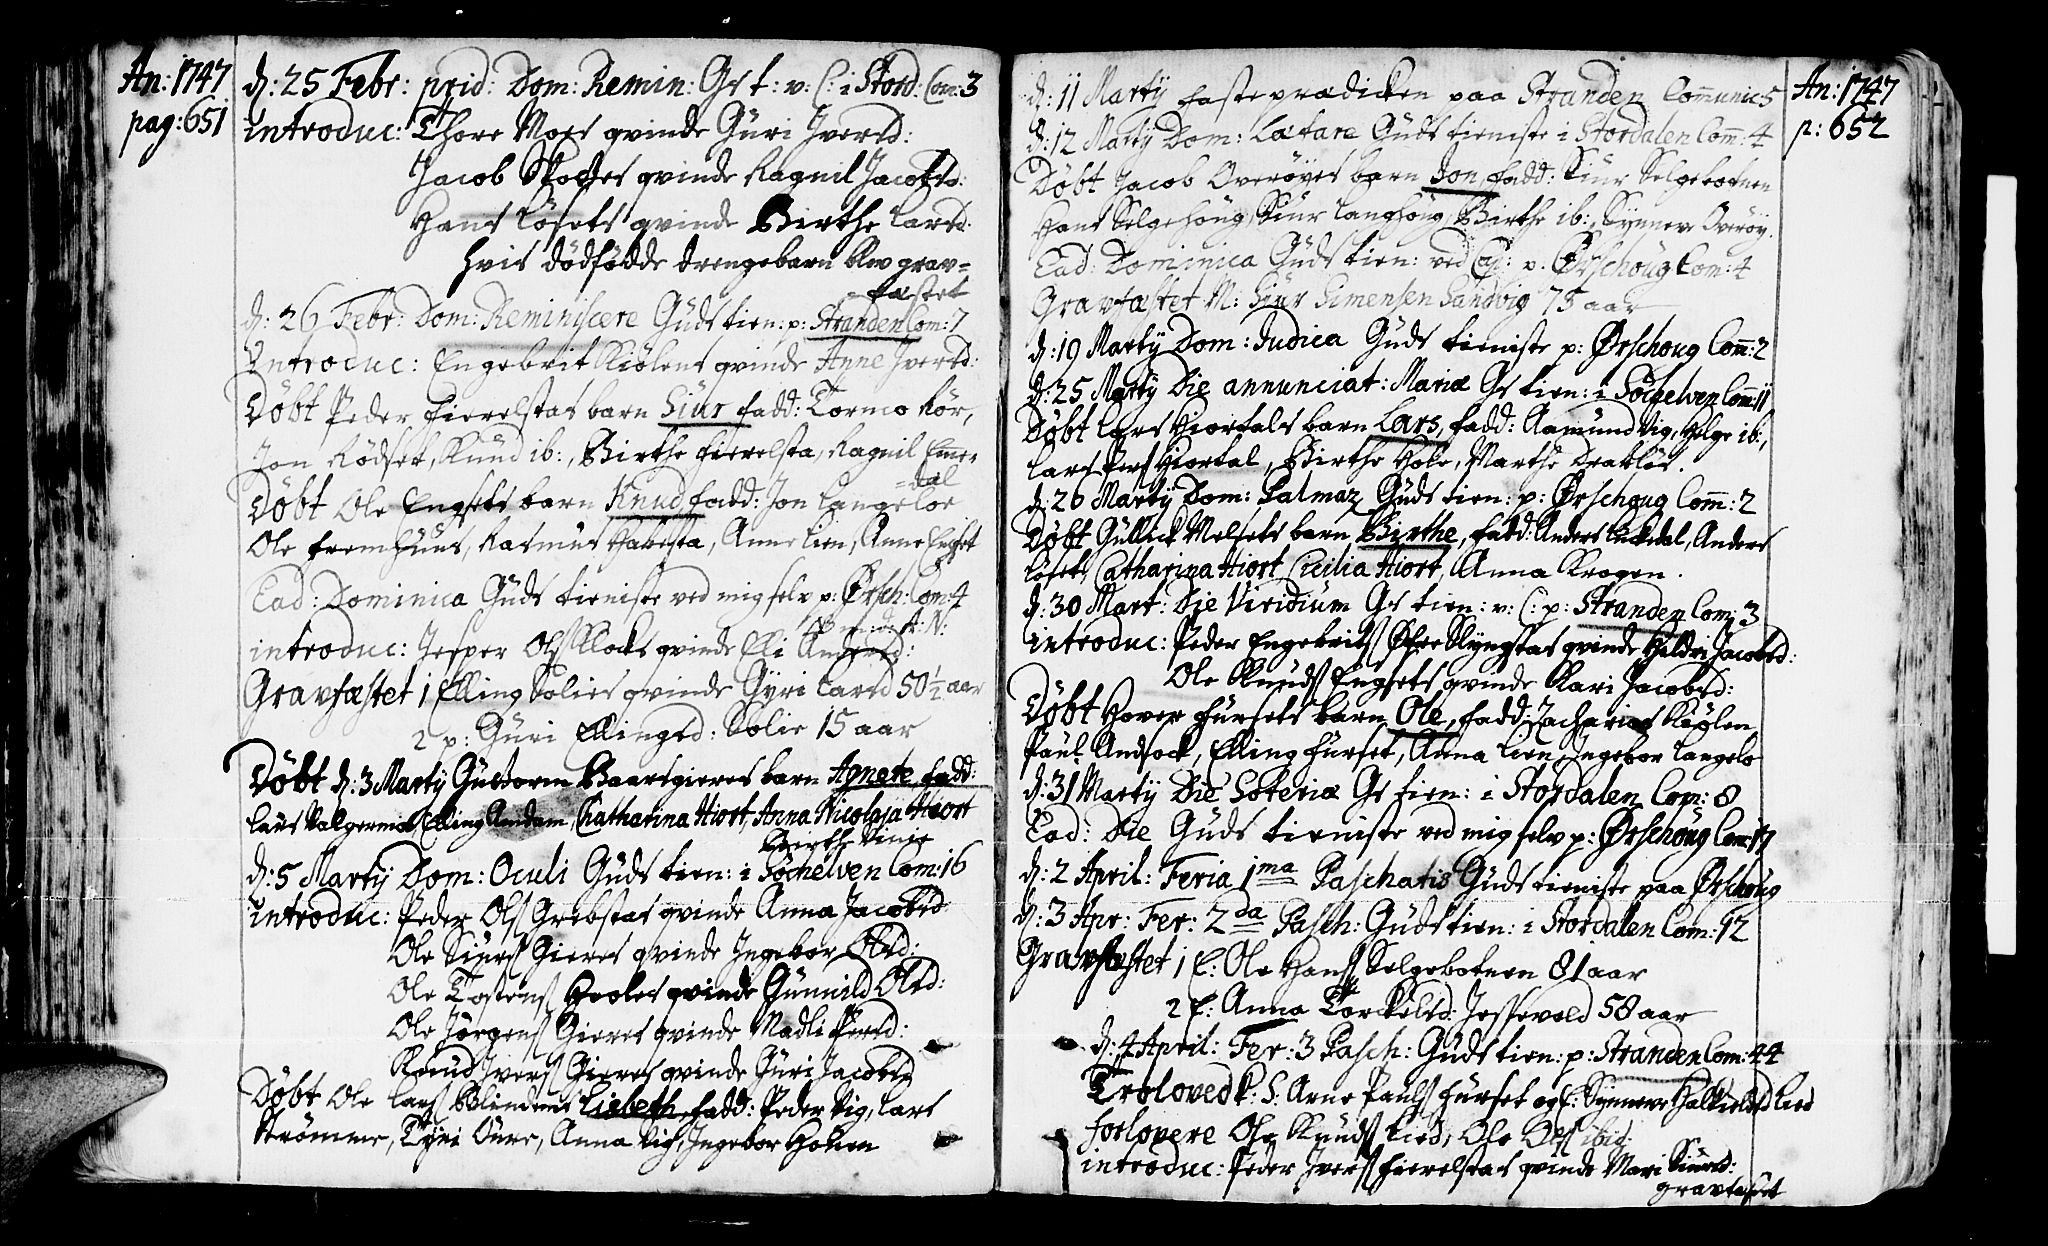 An: 1747
pag: 651
d: 25 Febr: prid: Dom: Remin: Gs t: v: C: i Stord: Com: 3
introduc: Thore Moes qvinde Gŭri Iversd:
Jacob Skodjes qvinde Ragnil Jacobsd:
Hans Löfets qvinde Birthe Larsd:
hvis dödfödde drengebarn blev grav=
fæstet
d: 26 Febr: Dom: Reminiscere Gŭds tien: p: Stranden Com: 7
Introduc: Engebrit Kiölens qvinde Anne Iversd:
Döbt Peder Fierelstas barn Siŭr fadd: Tormo Rör,
Jon Rödset, Knud ib:, Birthe Fierelsta, Ragnil Emer-
=dal
Döbt Ole Engsets barn Knud fadd: Jon Langeloe
Ole Fremhuus, Rasmus Habesta, Anne Lien, Anne Engset
Ead: Dominica Gŭds tieniste ved mig selv p: Ørsch: Com: 4
introduc: Jesper Ols Klocks qvinde Elli Andersd:
Gravfæstet 1 Elling Solies qvinde Gÿri Larsd 50 1/2 aar
2 p: Gŭri Ellingsd: Solie 15 aar
Döbt d: 3 Martÿ Gŭstorm Baarsgieres barn Agnete, fadd:
Laŭs Valgermoe, Elling Amdam, Chatharina Hiort, Anna Nicolaja Hiort
Birthe Vinje
d: 5 Martÿ Dom: Oculi Gŭds tien: i Söchelven Com: 16
introduc: Peder Ols Grebstas qvinde Anna Jacobsd:
Ole Siurs Gieres qvinde Ingebor Olsd:
Ole Tostens Hooles qvinde Gŭnnild Olsd:
Ole Jörgens Gieres qvinde Madli Persd:
Knud Ivers Gieres qvinde Gŭri Jacobsd
Döbt Ole Lars Blindems Lisbeth, fadd: Peder Vig, Lars
Strömme, Tÿri Oure, Anna Vig, Ingebor Holien
An: 1747
p: 652
d: 11 Martÿ faste prædicken paa Stranden Communic 5
d: 12 Martÿ Dom: Lætare Gŭds tieniste i Stordalen Com: 4
Döbt Jacob Overöyes barn Jon, fadd: Siur Selgebotnen
Hans Selgehöug, Siur Langhöug, Birthe ib:, Synneve Overöy.
Ead: Dominica Gŭds tien: ved Cap: p: Ørschoug Com: 4
Gravfæstet M: Siur Simensen Sandvig 75 aar
d: 19 Martÿ Dom: Judica Gŭds tieniste p: Ørschoug Com: 2
d: 25 Martÿ Die annunciat: Mariæ Gs tien: i Söchelven Com: 11
Döbt Lars Hiortals barn Lars, fadd: Aamund Vig, Helge ib:,
Lars Pers Hiortal, Birthe Hole, Marthe Drabløs.
d: 26 Martÿ Dom: Palmaz Gŭds tien: p: Ørschoug Com: 2
Döbt Gŭllick Melsets barn Birthe, fadd: Anders Lechdal, Anders
Löset, Catharina Hiort, Cicilia Hiort, Anna Krogen.
d: 30 Mart: Die Viridium Gs tien: v: C: p: Stranden Com: 3
introduc: Peder Engebrits Øfre Slyngstas qvinde Heldri Jacobsd:
Ole Knuds Engsets qvinde Kari Jacobsd:
Döbt Hover Furset barn Ole, fadd: Zacharias Kiölen
Paul Andsock, Elling Furset, Anna Lien, Ingebor Langelo
d: 31 Martÿ Die Soteriæ Gs tien: i Stordalen Com: 8
Ead: Die Gŭds tieniste ved mig selv p: Ørschoug Com: 17
d: 2 April: Feria 1ma Paschatis Gŭds tieniste paa Ørschoug
d: 3 Apr: Fer: 2da Pasch: Gŭds tien: i Stordalen Com: 12
Gravfæstet 1 E: Ole Hans Selgebotnen 81 aar
2 E: Anna Torckelsd: Jossevold 58 aar
d: 4 April: Fer: 3 Pasch: Gŭds tien: p: Stranden Com: 44
Troloved K: S: Arne Pauls Furset og E: Synneve Halkieldsd Lied
forlovere Ole Knuds Lied, Ole Ols ibid:
introduc: Peder Ivers Fierelstas qvinde Mari Siursd:
gravfæstet